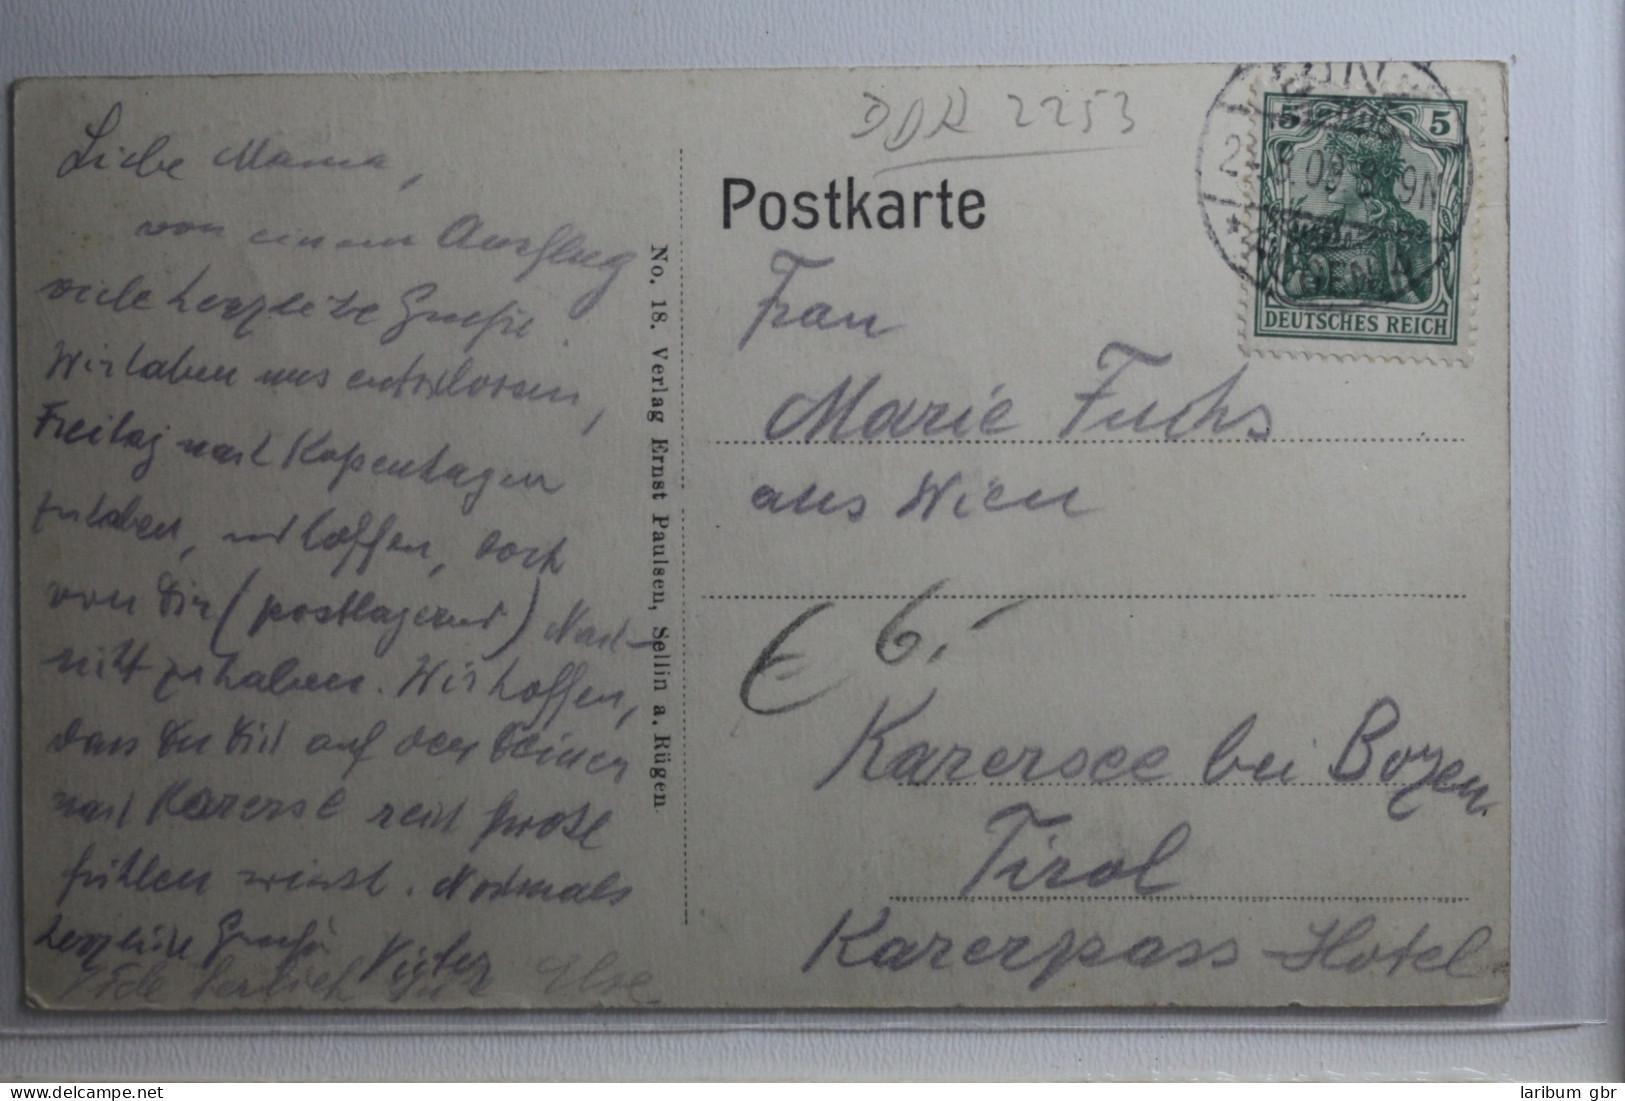 Liebe Mama,
von einem Ausflug
viele herzliche Grüße.
Wir haben uns entschlossen,
Freitag nach Kopenhagen
zu fahren, und hoffen, dort
von Dir (postlagernd) Nach-
richt zu haben. Wir hoffen,
dass Du Dich auf der
nach Karersee recht
fühlen wirst. Nochmals
herzliche Grüße Victor
herzlich Else
No. 18. Verlag Ernst Paulsen, Sellin a. Rügen
DDR 2253
Postkarte
5 5
DEUTSCHES REICH
8.09 8-9N
Frau
Marie Fuchs
aus Wien
€ 6.-
Karersee bei Bozen.
Tirol
Karerpass-Hotel
laribum gbr